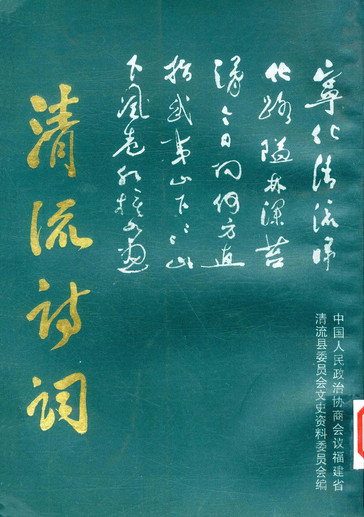 寧化清流歸
化路隘林深苔
滑今日向何方直
指武夷山下〻山
下风卷红旗如画
清流诗词
中国人民政治协商会议福建省
清流县委员会文史资料委员会编